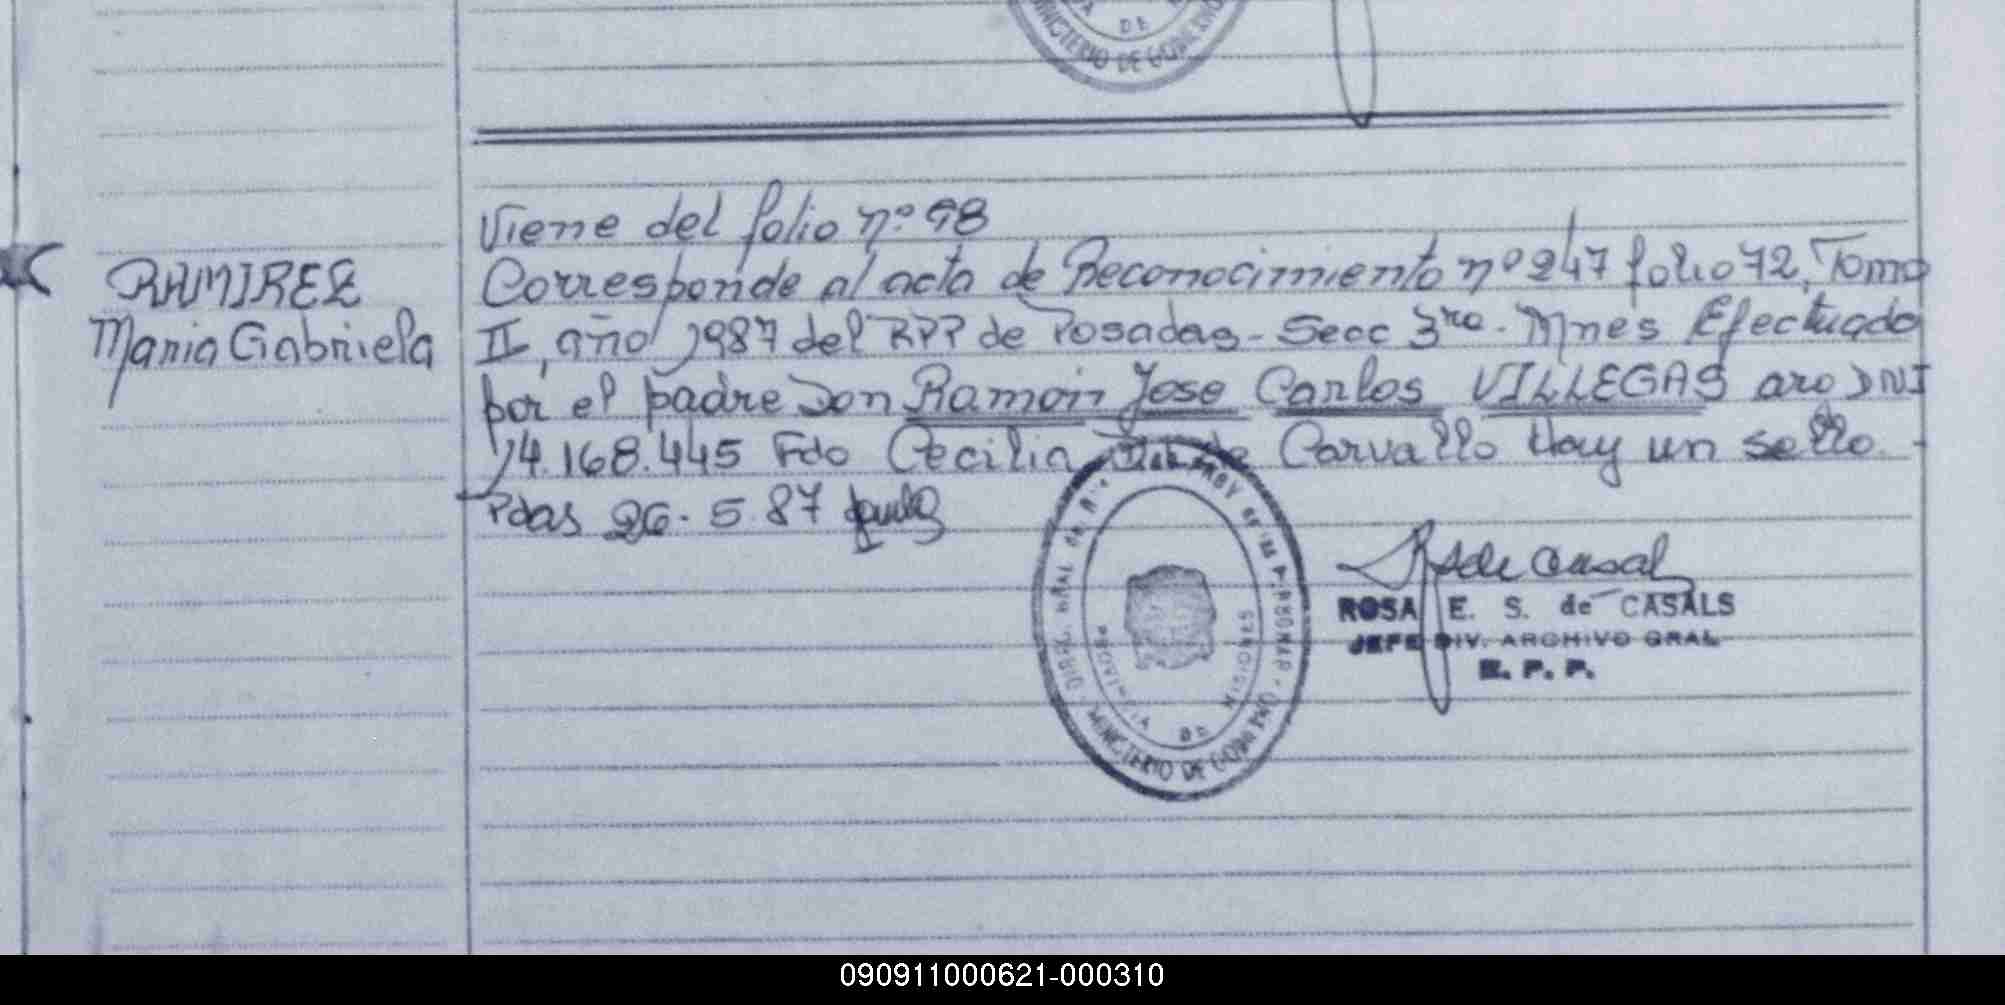 DE
MINISTERIO DE GOBIERNO
Viene del folio nº 98
RAMIREZ
Maria Gabriela
Corresponde al acta de Reconocimiento nº 247 folio 72, Tomo
II, año 1987 del RPP de Posadas - Secc 3ra - Mnes Efectuado
por el padre Don Ramón Jose Carlos VILLEGAS aro DNI
14.168.445 Fdo Cecilia de Carvallo Hay un sello. -
Pdas 26. 5. 87
MINISTERIO DE GOBIERNO
PROVINCIA DE MISIONES
ROSA E. S. de CASALS
JEFE DIV. ARCHIVO GRAL
R. P. P.
090911000621-000310